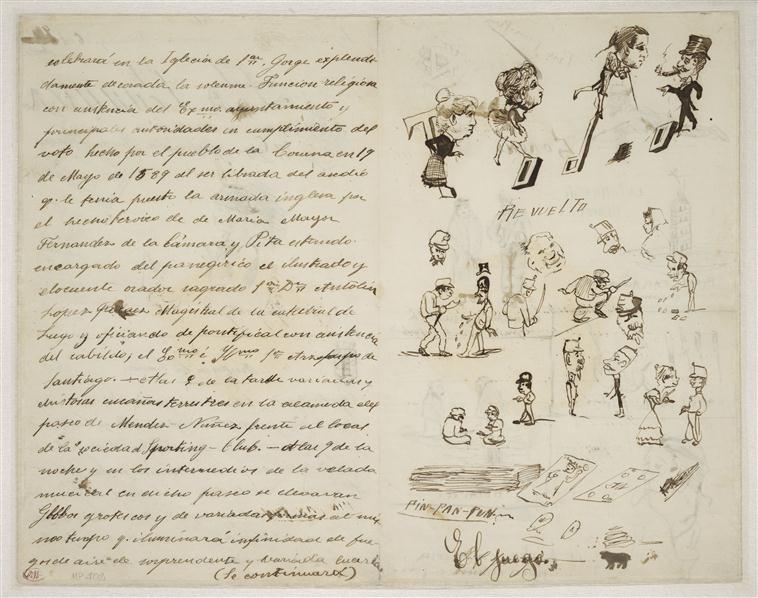 celebrará en la Iglecia de San Jorge explendi
damente decorada la solemne Funcion religiosa
con asistencia del Exmo. ayuntamiento y
principales autoridades en cumplimiento del
voto hecho por el pueblo de la Coruna en 19
de Mayo de 1589 al ser librada del asedio
q. le tenia puesto la armada inglesa por
el hecho heroico de de Maria Mayor
Fernandez de la Cámara y Pita estando
encargado del panegirico el ilustrado y
elocuente orador sagrado Sr. Dn Antolin
Lopez Magistral de la catedral de
Lugo y oficiando de pontifical con asistencia
del cabildo, el Exmo é Yllmo Sr. Arzobispo de
Santiago. — A las de la tarde variadas y
chistosas cucañas terrestres en la alameda del
paseo de Mendez-Nuñez frente al local
de la sociedad Sporting-Club. — A las 9 de la
noche y en los intermedios de la velada
musical en dicho paseo se elevaran
Globos grotescos y de variadas formas al mis
mo tiempo q. iluminará infinidad de fue
gos de aire de sorprendente y variada
(Se continuará)
MP 402
REVUELTO
PIN-PAN-PUN
El fuego.